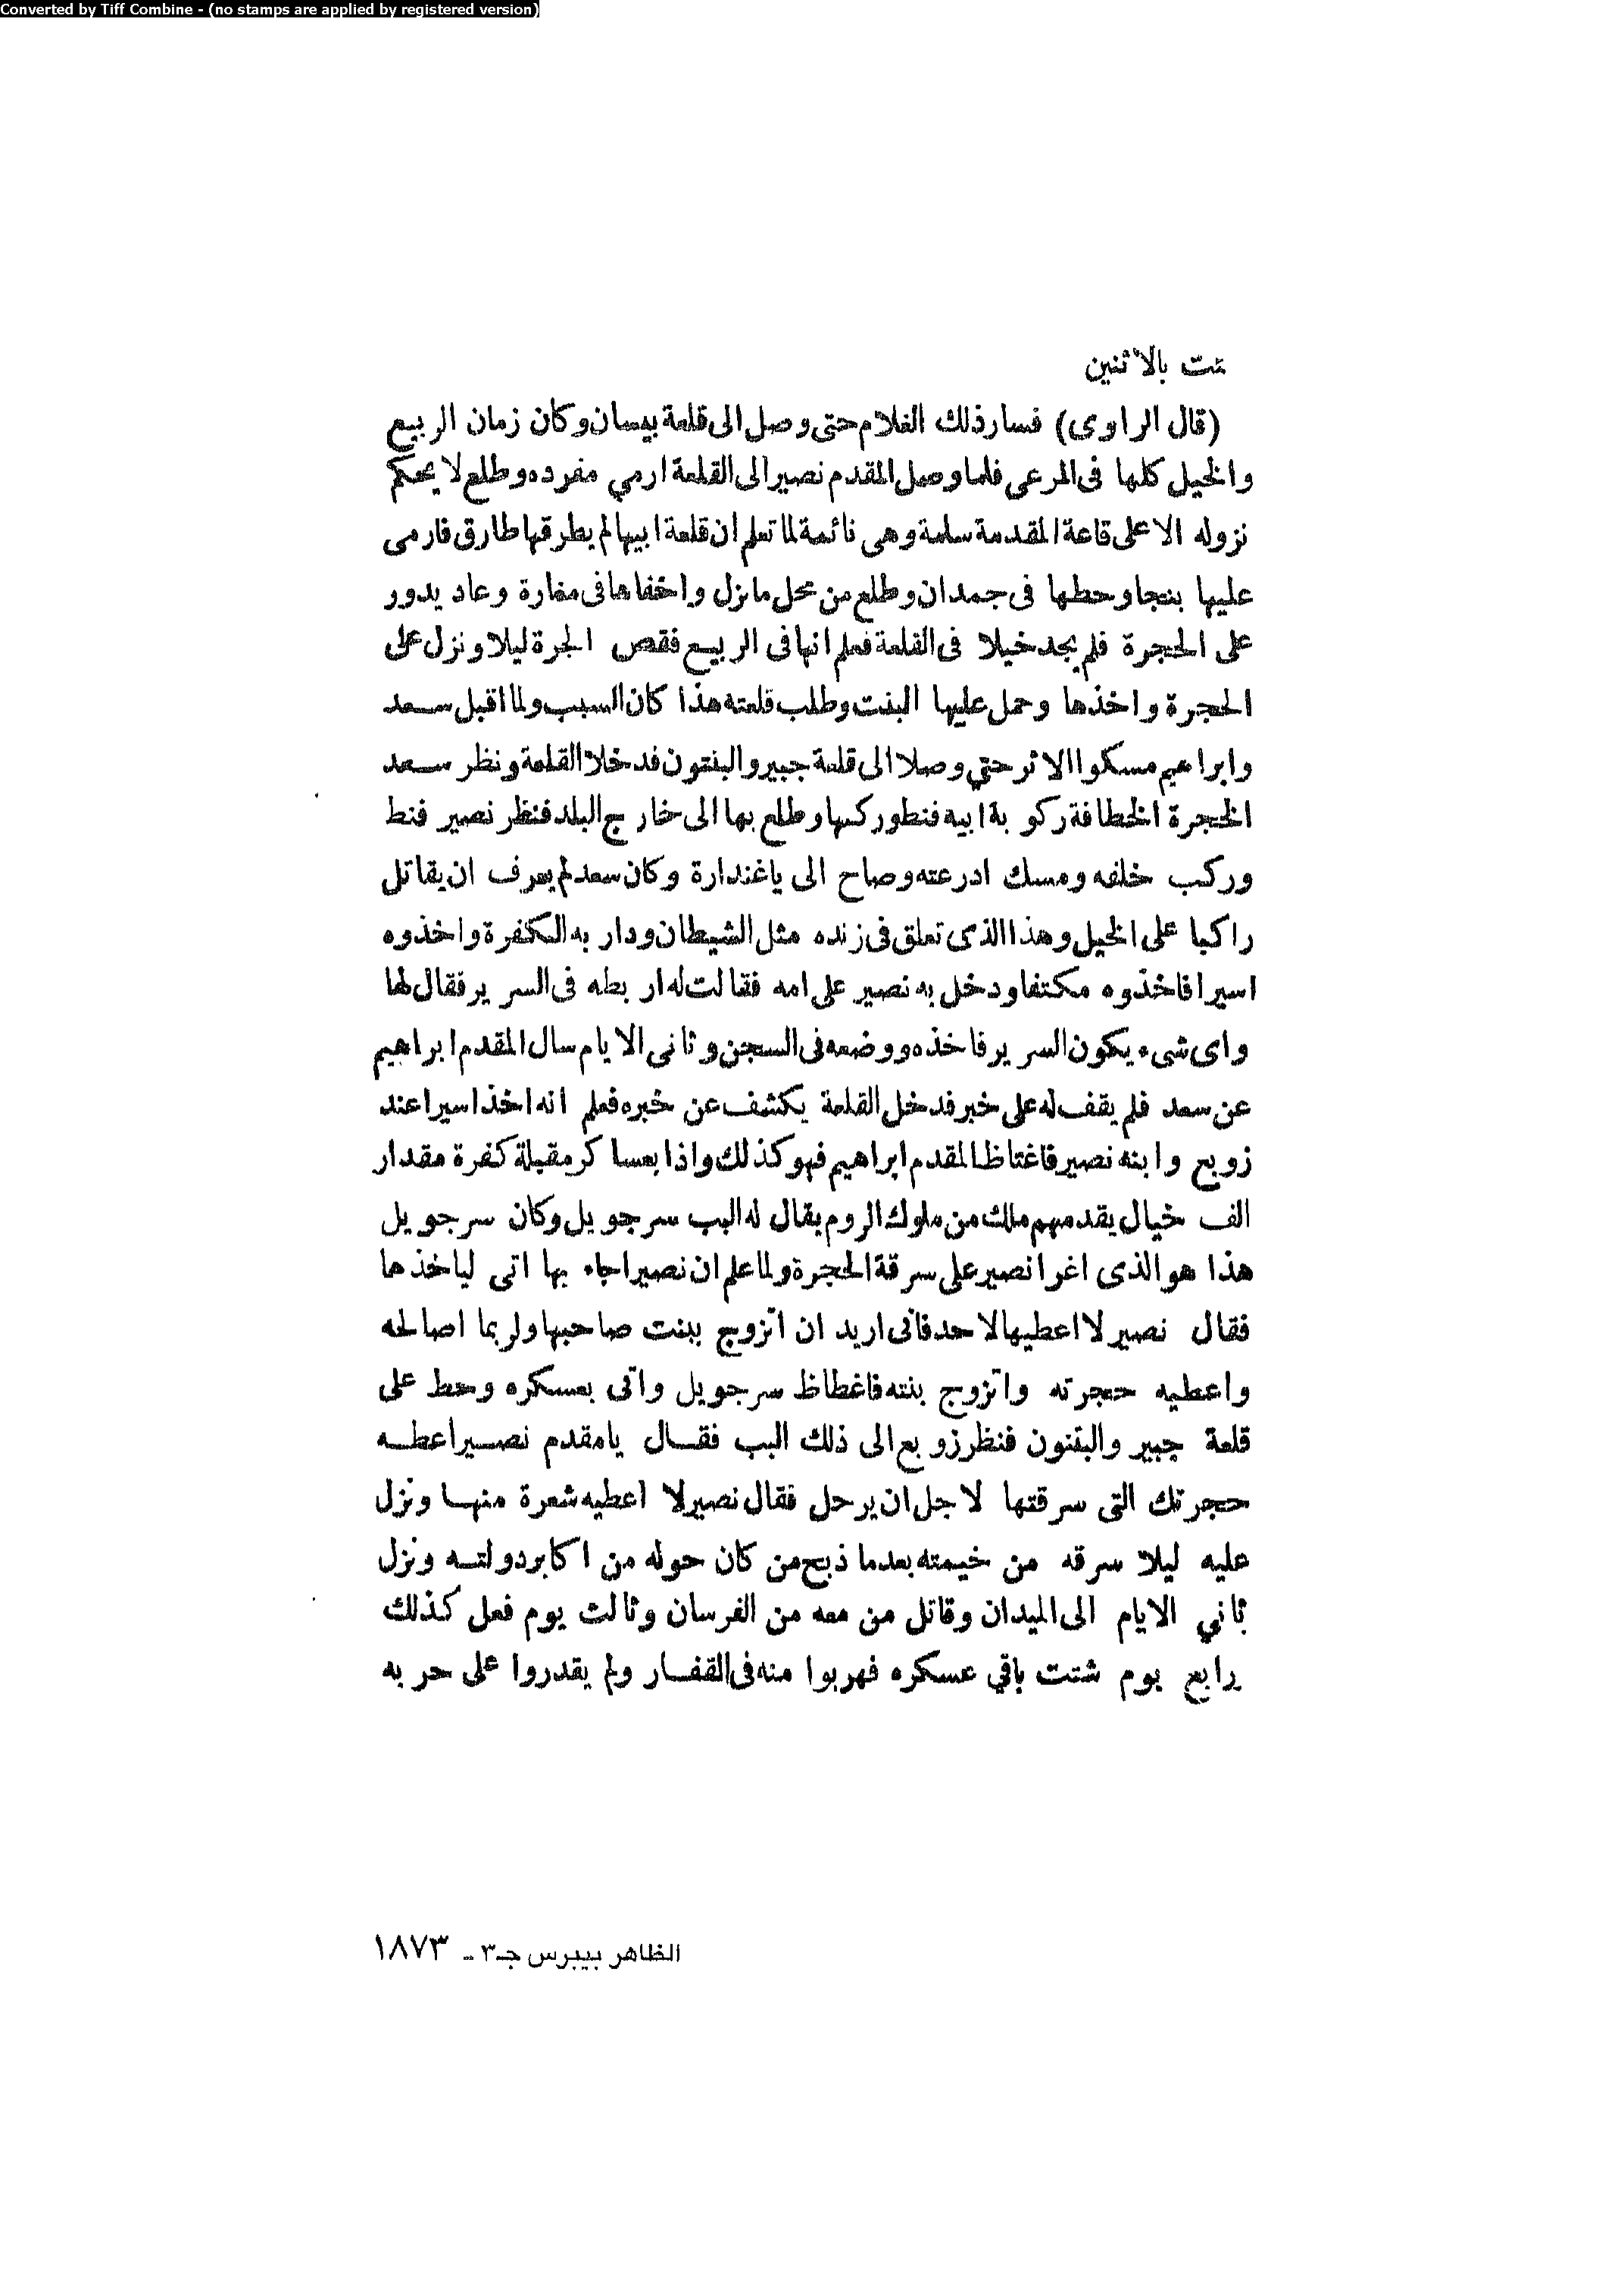 Converted by Tiff Combine - (no stamps are applied by registered version)
بالاثنين
(قال الراوى) فسار ذلك الغلام حتى وصل الى قلعة بيسان وكان زمان الربيع
والخيل كلها فى المرعى فلما وصل المقدم نصير الى القلعة ارمي مفرده وطلع لا يحكم
نزوله الا على قاعة المقدمة سلمة وهى نائمة لما تعلم ان قلعة ابيها لم يطرقها طارق فارمى
عليها بنجا وحطها فى جمدان وطلع من محل ما نزل واخفاها فى مغارة وعاد يدور
على الحجرة فلم يجد خيلا فى القلعة فعلم انها فى الربيع فقص الجرة ليلا ونزل على
الحجرة واخذها وحمل عليها البنت وطلب قلعته هذا كان السبب ولما اقبل سعد
وابراهيم مسكوا الاثر حتي وصلا الى قلعة جبير والبنتون فدخلا القلعة ونظر سعد
الحجرة الخطافة ركوبة ابيه فنط وركبها وطلع بها الى خارج البلد فنظر نصير فنط
وركب خلفه ومسك ادرعته وصاح الى ياغندارة وكان سعد لم يعرف ان يقاتل
راكبا على الخيل وهذا الذى تعلق فى زنده مثل الشيطان ودار به الكفرة واخذوه
اسيرا فاخذوه مكتفا ودخل به نصير على امه فقالت له اربطه فى السرير فقال لها
واى شىء يكون السرير فاخذه ووضعه فى السجن وثانى الايام سال المقدم ابراهيم
عن سعد فلم يقف له على خبر فدخل القلعة يكشف عن خبره فعلم انه اخذ اسيرا عند
زوبع وابنه نصير فاغتاظ المقدم ابراهيم فهو كذلك واذا بعساكر مقبلة كفرة مقدار
الف خيال يقدمهم ملك من ملوك الروم يقال له البب سرجويل وكان سرجويل
هذا هو الذى اغرا نصير على سرقة الحجرة ولما علم ان نصيرا جاء بها اتى لياخذها
فقال نصير لا اعطيها لاحد فانى اريد ان اتزوج ببنت صاحبها ولربما اصالحه
واعطيه حجرته واتزوج بنته فاغطاظ سرجويل واتى بعسكره وحط على
قلعة جبير والبقنون فنظر زوبع الى ذلك البب فقال يا مقدم نصير اعطه
حجرتك التى سرقتها لاجل ان يرحل فقال نصير لا اعطيه شعرة منها ونزل
عليه ليلا سرقه من خيمته بعدما ذبح من كان حوله من اكابر دولته ونزل
ثاني الايام الى الميدان وقاتل من معه من الفرسان وثالث يوم فعل كذلك
رابع يوم شتت باقي عسكره فهربوا منه فى القفار ولم يقدروا على حربه
الظاهر بيبرس جـ٣ - ١٨٧٣